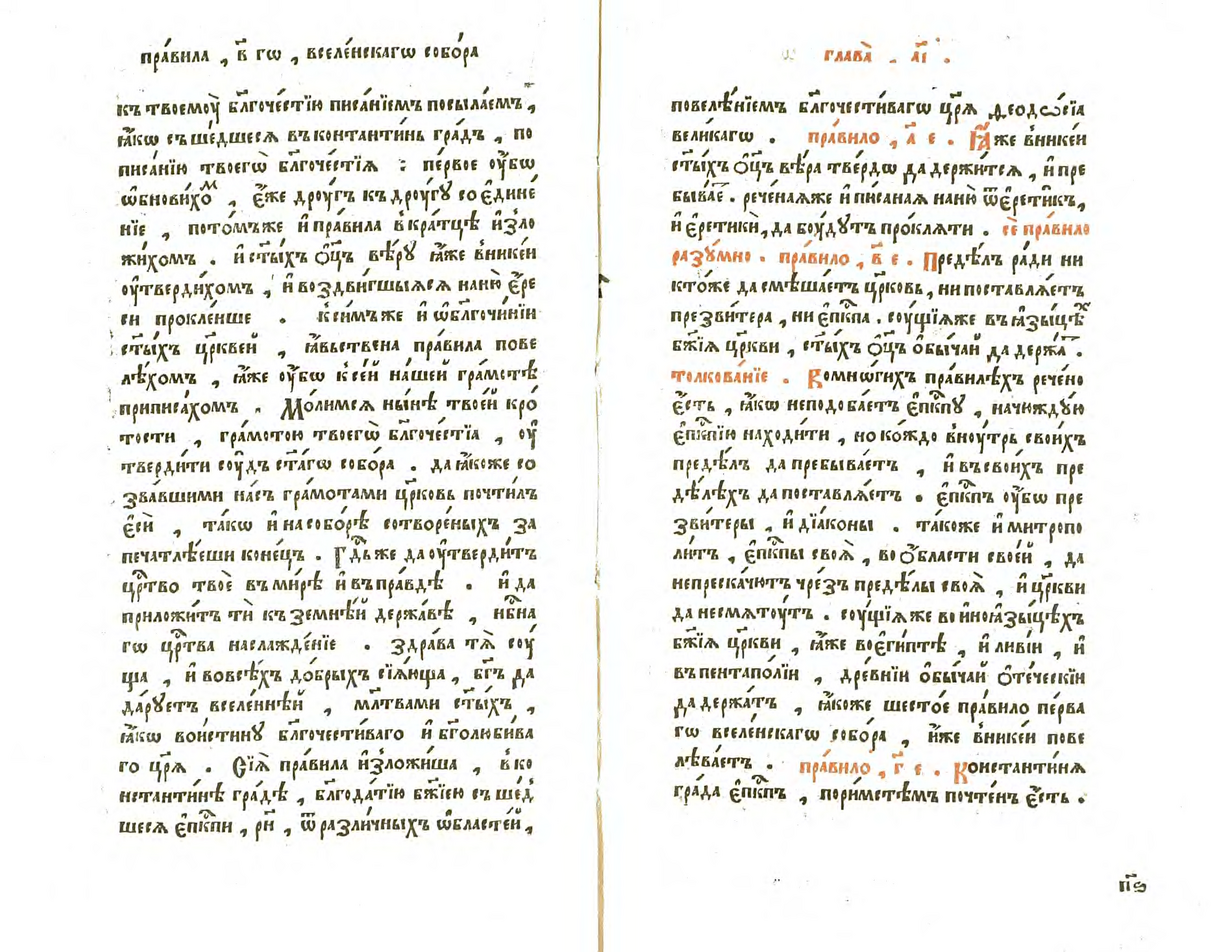 пра́вила , в҃ гѡ , вселе́нскагѡ собо́ра
къ твоемоу̀ бл҃гоче́стїю писа́нїемъ посыла́емъ ,
ꙗ҆́кѡ съше́дшесѧ въ контанти́нь гра́дъ , по
писа́нїю твоегѡ̀ бл҃гоче́стїѧ : пе́рвое оу҆́бѡ
ѡ҆бнови́хоⷨ , є҆́же дроу́гъ къ дроу́гꙋ соє҆дине́
нїе , пото́мъже и҆ пра́вила вкра́тцѣ и҆зло
жи́хомъ . и҆ ст҃ы́хъ ѻ҆ц҃ъ вѣ́рꙋ ꙗ҆́же вникеи
оу҆тверди́хомъ , и҆ воздви́гшыѧсѧ наню̀ є҆́ре
си прокле́нше . ксимъже и҆ ѡ҆бл҃гочи́нїи
ст҃ы́хъ цр҃кве́й , ꙗ҆́вьствена пра́вила пове
лѣ́хомъ , ꙗ҆́же оу҆́бѡ ксе́й на́шей гра́мотѣ
приписа́хомъ . Мо́лимсѧ ны́нѣ твое́й кро́
тости , гра́мотою твоегѡ̀ бл҃гоче́стїа , оу҆
тверди́ти соу́дъ ст҃а́гѡ собо́ра . да ꙗ҆́коже со
зва́вшими на́съ гра́мотами цр҃ковь почти́лъ
є҆сѝ , та́кѡ и҆ на собо́рѣ сотворе́ныхъ за
печатлѣ́еши коне́цъ . Гд҇ь же да оу҆тверди́тъ
цр҇тво твоѐ въ ми́рѣ и҆ въ пра́вдѣ . и҆ да
приложи́тъ тѝ къ земнѣ́й держа́вѣ , нб҇на
гѡ цр҇тва наслажде́нїе . здра́ва тѧ̀ соу́
ща , и҆ вовсѣ́хъ до́брыхъ сїѧ́юща , бг҃ъ да
да́рꙋетъ вселе́ннѣй , мл҃твами ст҃ы́хъ ,
ꙗ҆́кѡ вои́стинꙋ бл҃гочести́ваго и҆ бг҃олюби́ва
го цр҃ѧ̀ . Сїѧ̀ пра́вила и҆зложи́ша , в ко
нстанти́нѣ гра́дѣ , бл҃года́тїю бж҃їею съ ше́д
шесѧ є҆пк҇пи , рн҃ , ѿ разли́чныхъ ѡ҆бласте́й ,
глава̀ . а҃і .
повелѣ́нїемъ бл҃гочести́вагѡ цр҃ѧ̀ ѳеодѡ́сїа
вели́кагѡ . пра́вило , а҃ е . Ꙗ҆́же вникеи
ст҃ы́хъ ѻ҆ц҃ъ вѣ́ра тве́рдѡ да держи́тсѧ , и҆ пре
быва́еⷮ . рече́наѧже и҆ пи́санаѧ наню̀ ѿ є҆ретѝкъ ,
и҆ є҆́ретики , да боу́дꙋтъ про́клѧти . сѐ пра́вило
разꙋ́мно . пра́вило , в҃ е . Предѣ́лъ ра́ди ни
кто́же да смѣша́етъ цр҃ковь , ни поставлѧ́етъ
презви́тера , ни є҆пк҇па . соу́щїѧже въ ꙗ҆зы́цѣⷯ
бж҃їѧ цр҃кви , ст҃ы́хъ ѻ҆ц҃ъ ѻ҆бы́чай да держа́ⷮ .
толкова́нїе . Вомно́гихъ пра́вилѣхъ рече́но
є҆́сть , ꙗ҆́кѡ неподоба́етъ є҆пк҇пꙋ , на чюждꙋ́ю
є҆пк҇пїю находи́ти , но ко́ждо вноу́трь свои́хъ
предѣ́лъ да пребыва́етъ , и҆ въ свои́хъ пре
дѣ́лѣхъ да поставлѧ́етъ . є҆пк҇пъ оу҆́бѡ пре
зви́теры , и҆ дїа́коны . та́коже и҆ митропо
ли́тъ , є҆пк҇пы своѧ̀ , во ѻ҆́бласти своей , да
непреска́чютъ чре́зъ предѣ́лы своѧ̀ , и҆ цр҃кви
да несмѧтоу́тъ . соу́щїѧже во и҆но ꙗ҆зы́цѣхъ
бж҃їѧ цр҃кви , ꙗ҆́же воє҆ги́птѣ , и҆ ли́вїи , и҆
въ пентапо́лїи , дре́внїи ѻ҆бы́чай ѻ҆те́ческїи
да держа́тъ , ꙗ҆́коже шесто́е пра́вило пе́рва
гѡ вселе́нскагѡ собо́ра , и҆́же вникеи пове
лѣва́етъ . пра́вило , г҃ е . Константи́нѧ
гра́да є҆пк҇пъ , пори́мстѣмъ почте́нъ є҆́сть .
п҃ѕ